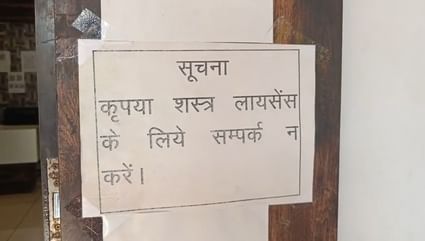 सूचना
कृपया शस्त्र लायसेंस
के लिये सम्पर्क न
करें।